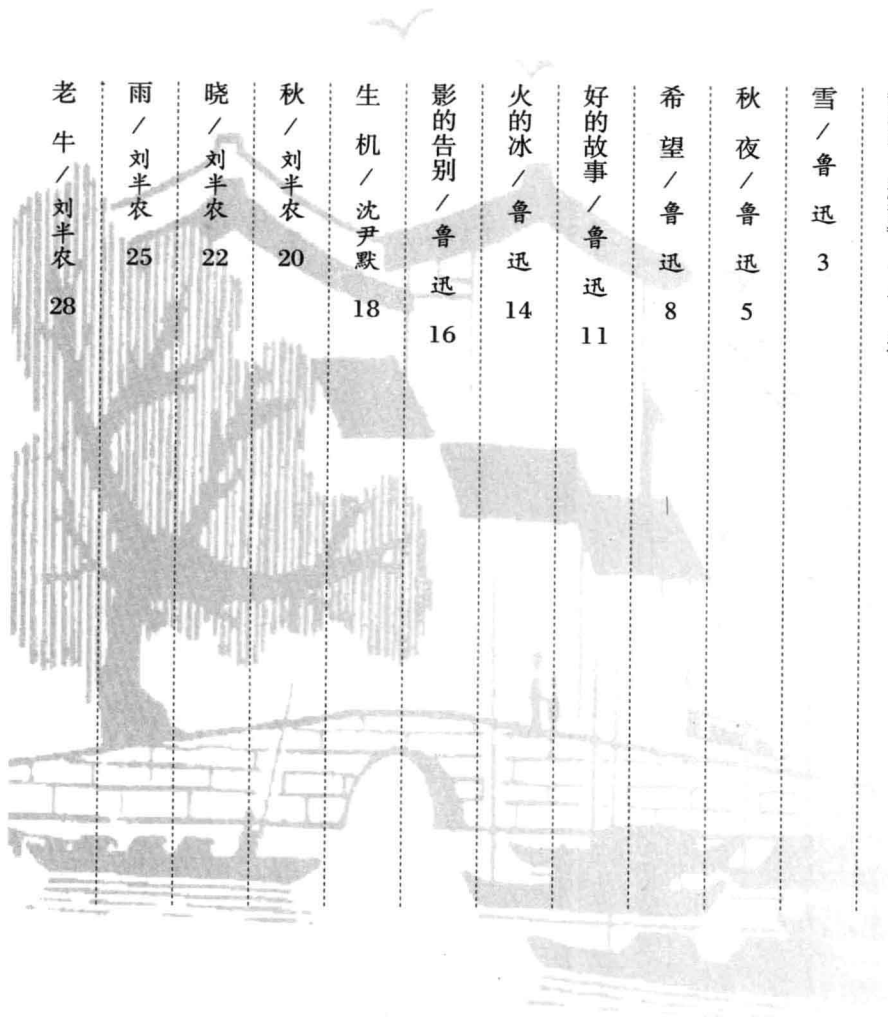 雪/鲁 迅 3
秋 夜/鲁 迅 5
希 望/鲁 迅 8
好的故事/鲁 迅 11
火的冰/鲁 迅 14
影的告别/鲁 迅 16
生 机/沈尹默 18
秋/刘半农 20
晓/刘半农 22
雨/刘半农 25
老 牛/刘半农 28